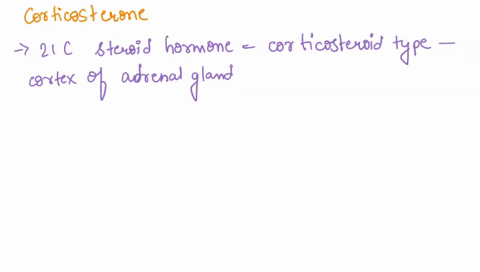 Corticosterone
→ 21 C steroid hormone = corticosteroid type —
cortex of adrenal gland